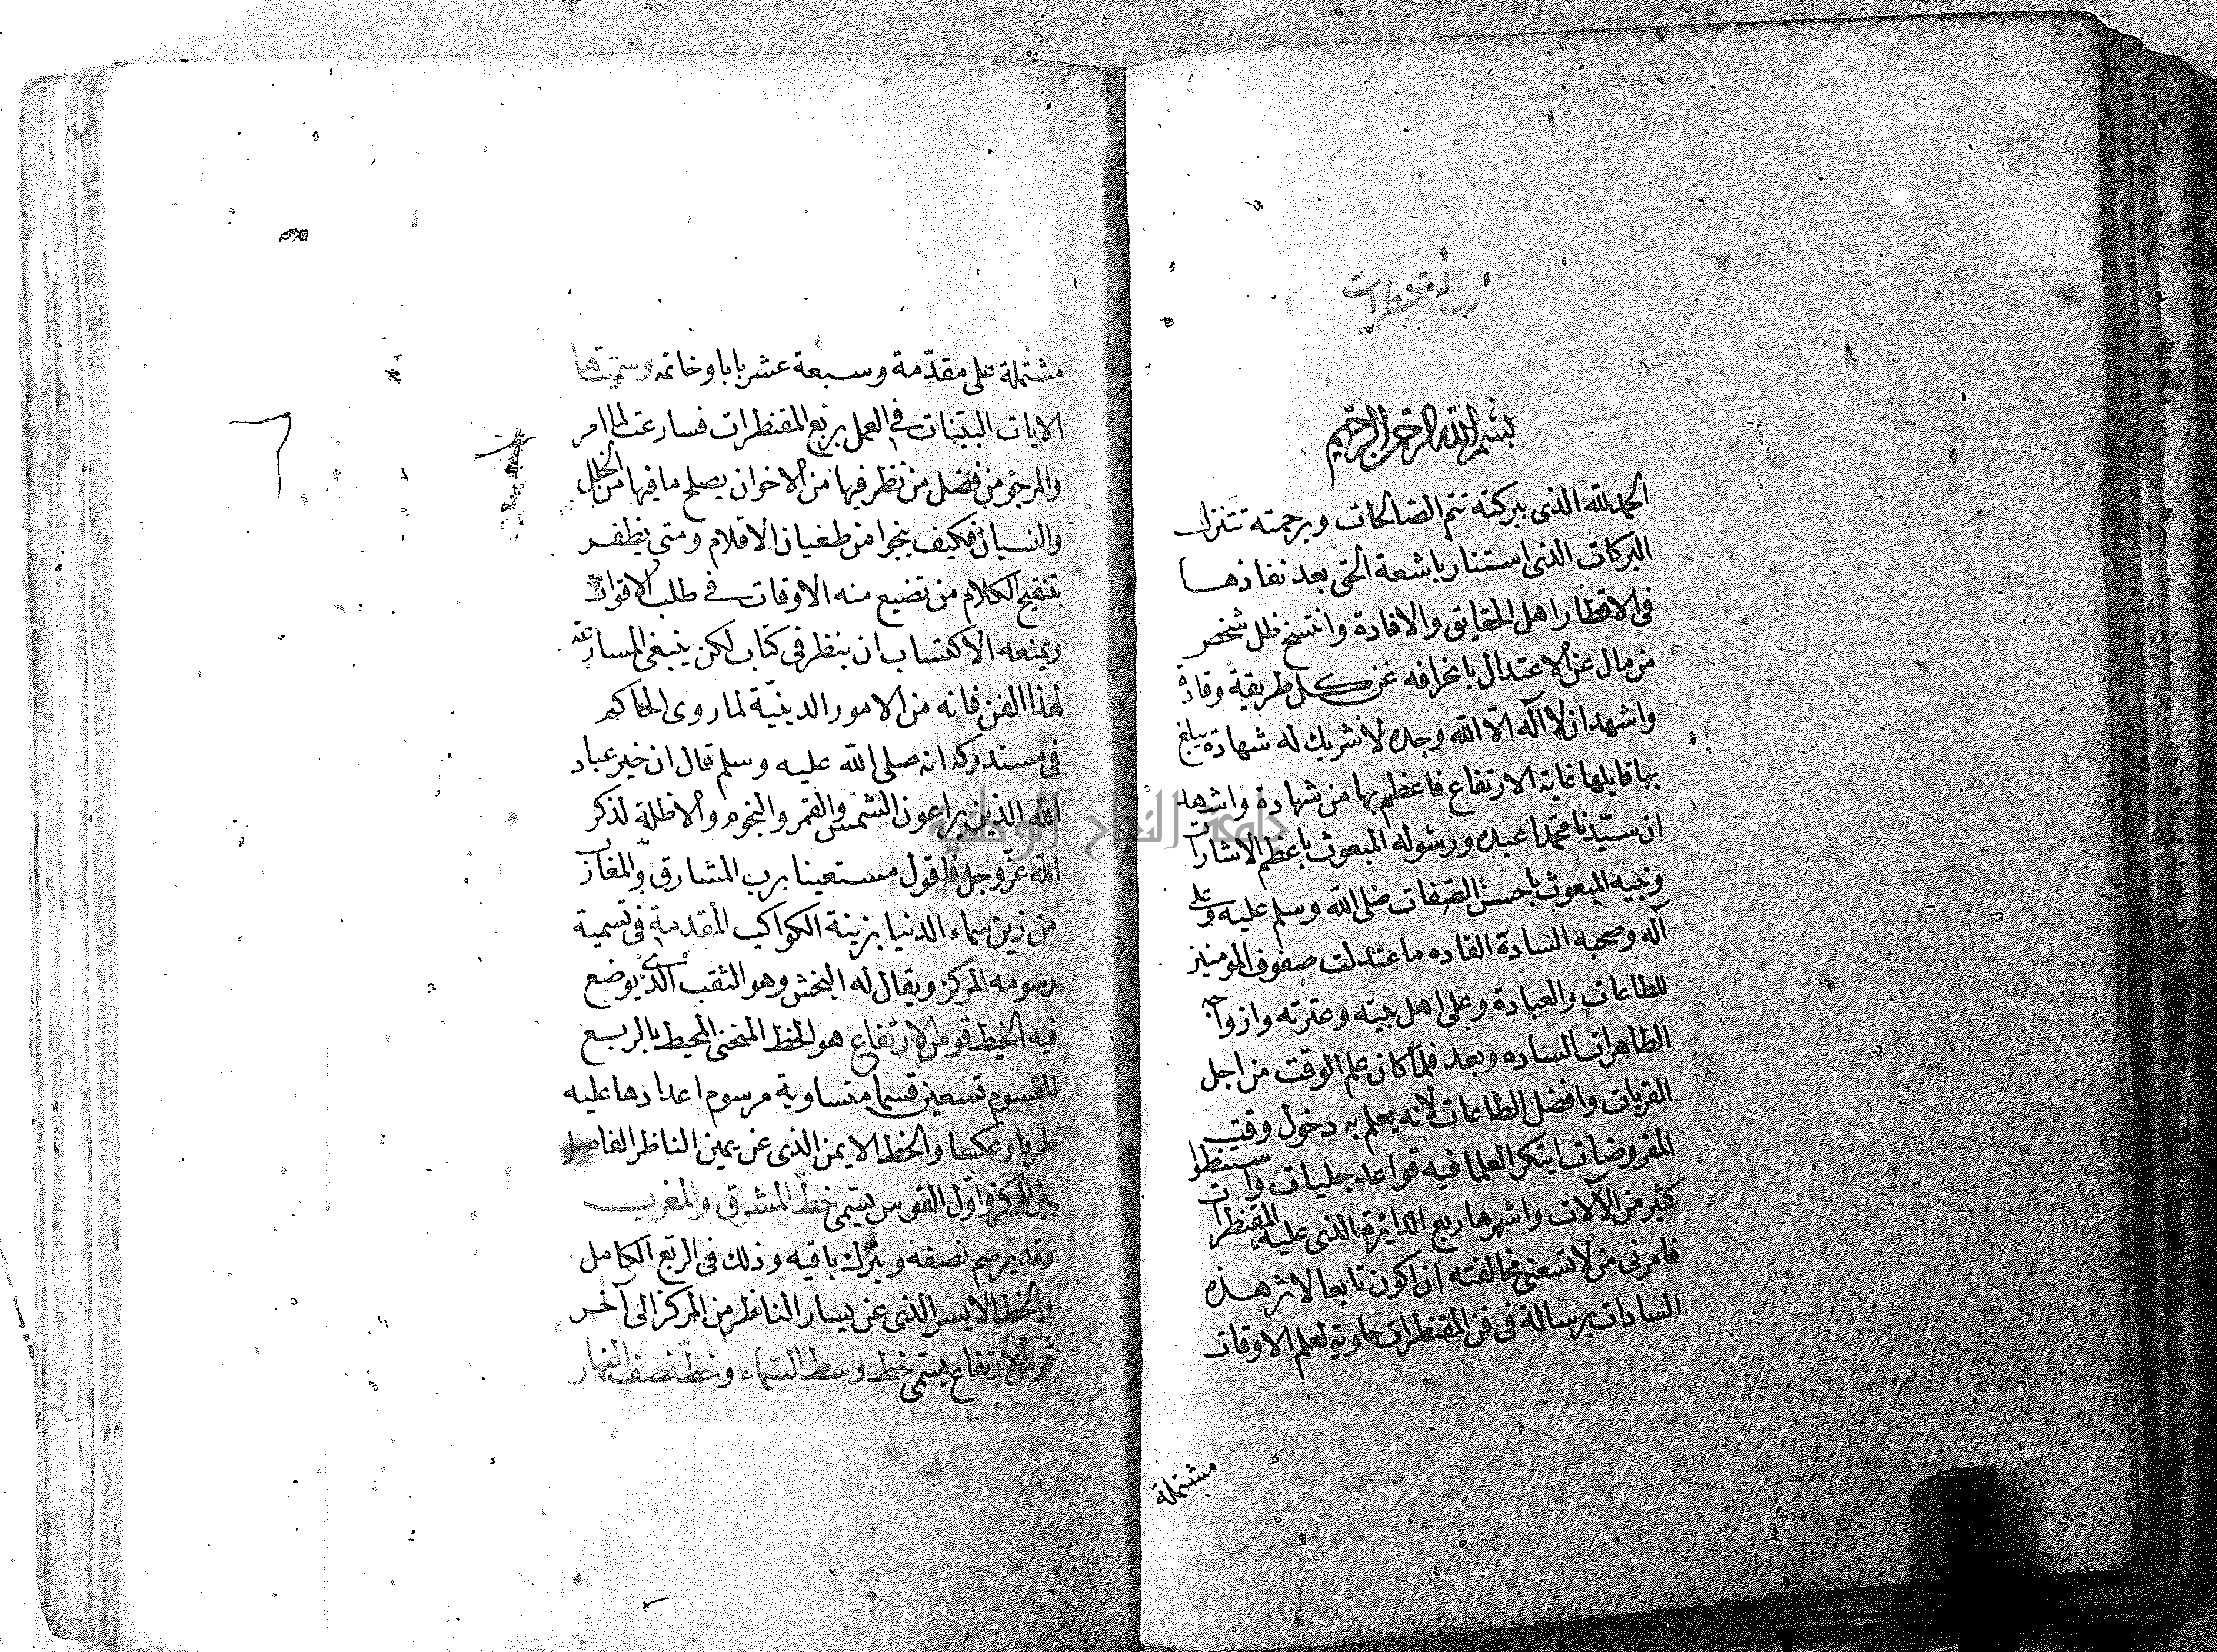 رسالة مقنطرات
بسم الله الرحمن الرحيم
الحمد لله الذى ببركته تتم الصالحات وبرحمته تتنزل
البركات الذى استنار باشعة الحق بعد نفاذها
فى الاقطار اهل الحقايق والافادة وانتسخ ظل شخص
من مال عن الاعتدال بانحرافه عن كل طريقة وقادة
واشهد ان لا اله الا الله وحده لا شريك له شهادة يبلغ
بها قايلها غاية الارتفاع فاعظم بها من شهادة واشهد
ان سيدنا محمدا عبده ورسوله المبعوث باعظم الاشارات
ونبيه المبعوث باحسن الصفات صلى الله وسلم عليه وعلى
آله وصحبه السادة القاده ما اعتدلت صفوف المومنين
للطاعات والعبادة وعلى اهل بيته وعترته وازواجه
الطاهرات الساده وبعد فلما كان علم الوقت من اجل
القربات وافضل الطاعات لانه يعلم به دخول وقت
المفروضات ابتكر العلما فيه قواعد جليات واستنبطوا
كثير من الآلات واشهرها ربع الدائرة الذى عليه المقنطرات
فامرنى من لا تسعنى مخالفته ان اكون تابعا لاثر هذه
السادات برسالة فى فن المقنطرات حاوية لعلم الاوقات
مشتملة
مشتملة على مقدّمة وسبعة عشر بابا وخاتمه وسميتها
الايات البينات فى العمل بربع المقنطرات فسارعت لما امر
والمرجو من فضل من نظر فيها من الاخوان يصلح ما فيها من الخلل
والنسيان فكيف ينجوا من طغيان الاقلام ومتى يظفر
بتنقيح الكلام من تضيع منه الاوقات فى طلب الاقوات
ويمنعه الاكتساب ان ينظر فى كتاب لكن ينبغى المسارعة
لهذا الفن فانه من الامور الدينيّة لما روى الحاكم
فى مستدركه انه صلى الله عليه وسلم قال ان خير عباد
الله الذين يراعون الشمس والقمر والنجوم والاظلة لذكر
الله عزّ وجل فاقول مستعينا برب المشارق والمغارب
من زين سماء الدنيا بزينة الكواكب المقدمة فى تسمية
رسومه المركز ويقال له البخش وهو الثقب الذى يوضع
فيه الخيط قوس الارتفاع هو الخط المنحنى المحيط بالربع
المقسوم تسعين قسما متساوية مرسوم اعدادها عليه
طردا وعكسا والخط الايمن الذى عن يمين الناظر الفاصل
بين المركز واوّل القوس يسمى خطّ المشرق والمغرب
وقد يرسم نصفه ويترك باقيه وذلك فى الربع الكامل
والخط الايسر الذى عن يسار الناظر من المركز الى آخر
قوس الارتفاع يسمى خط وسط السماء وخطّ نصف النهار